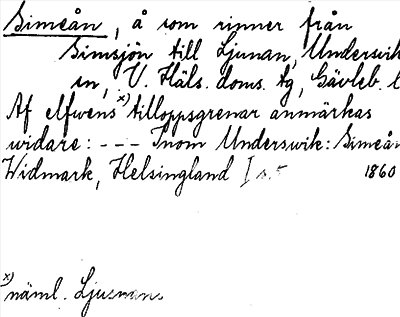 Simeån, å som rinner från
Simsjön till Ljunan, Undersvik
en, V. Häls. doms. tg, Gävleb. l
Af elfwens x) tilloppsgrenar anmärkas
widare: --- Inom Underswik: Simeån
Widmark, Helsingland I s. 5 1860
x) näml. Ljusnans